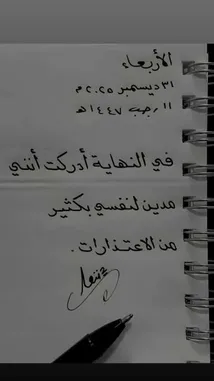 الأربعاء
٣١ ديسمبر ٢٠٢٥م
١١ رجب ١٤٤٧هـ
في النهاية أدركت أنني
مدين لنفسي بكثير
من الاعتذارات.